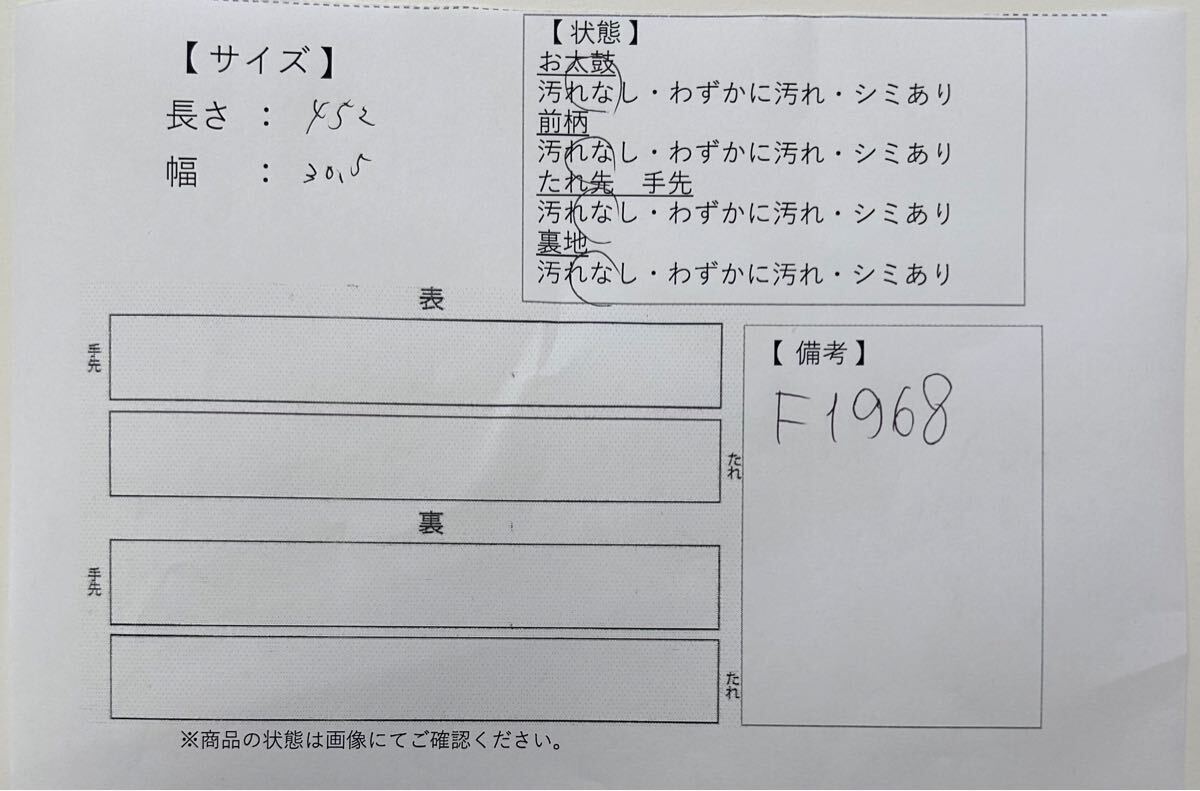 【 サイズ 】
長さ ： 452
幅 ： 30.5
【 状態 】
お太鼓
汚れなし・わずかに汚れ・シミあり
前柄
汚れなし・わずかに汚れ・シミあり
たれ先 手先
汚れなし・わずかに汚れ・シミあり
裏地
汚れなし・わずかに汚れ・シミあり
表
手先
たれ
裏
手先
たれ
【 備考 】
F1968
※商品の状態は画像にてご確認ください。